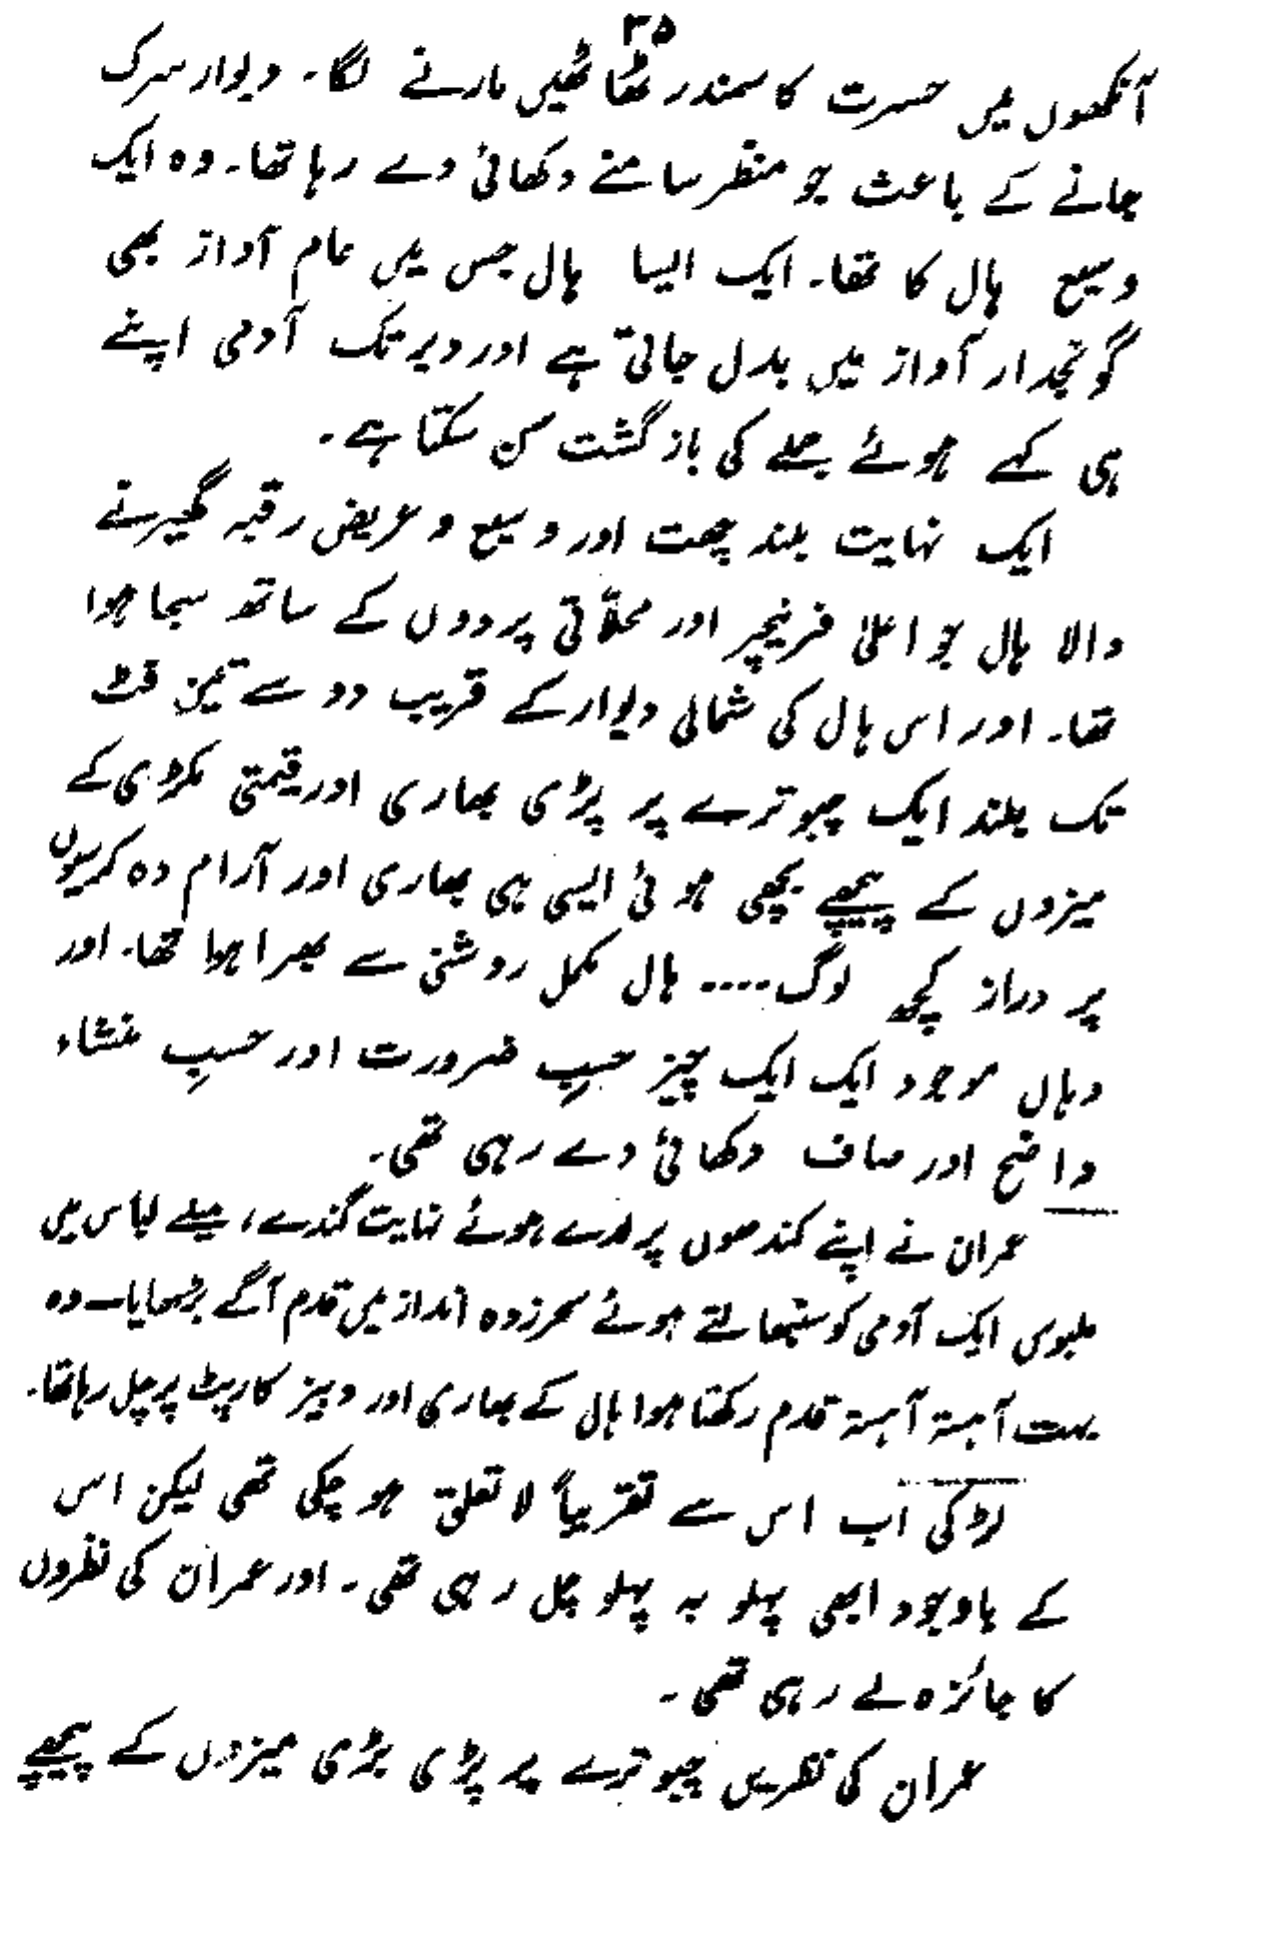 ۳۵
آنکھوں میں حسرت کا سمندر ٹھاٹھیں مارنے لگا۔ دیوار سرک
جانے کے باعث جو منظر سامنے دکھائی دے رہا تھا۔ وہ ایک
وسیع ہال کا تھا۔ ایک ایسا ہال جس میں عام آواز بھی
گونجدار آواز میں بدل جاتی ہے اور دیر تک آدمی اپنے
ہی کہے ہوئے جملے کی بازگشت سن سکتا ہے۔
ایک نہایت بلند چھت اور وسیع و عریض رقبہ گھیرنے
والا ہال جو اعلیٰ فرنیچر اور محلّاتی پردوں کے ساتھ سجا ہوا
تھا۔ اور اس ہال کی شمالی دیوار کے قریب دو سے تین فٹ
تک بلند ایک چبوترے پر پڑی بھاری اور قیمتی لکڑی کے
میزوں کے پیچھے بچھی ہوئی ایسی ہی بھاری اور آرام دہ کرسیوں
پر دراز کچھ لوگ.... ہال مکمل روشنی سے بھرا ہوا تھا۔ اور
وہاں موجود ایک ایک چیز حسبِ ضرورت اور حسبِ منشاء
واضح اور صاف دکھائی دے رہی تھی۔
عمران نے اپنے کندھوں پر لدے ہوئے نہایت گندے، میلے لباس میں
ملبوس ایک آدمی کو سنبھالتے ہوئے سحرزدہ انداز میں قدم آگے بڑھایا۔ وہ
بہت آہستہ آہستہ قدم رکھتا ہوا ہال کے بھاری اور دبیز کارپٹ پر چل رہا تھا۔
لڑکی اب اس سے تقریباً لا تعلق ہو چکی تھی لیکن اس
کے باوجود ابھی پہلو بہ پہلو چل رہی تھی۔ اور عمران کی نظروں
کا جائزہ لے رہی تھی۔
عمران کی نظریں چبوترے پر پڑی بڑی میزوں کے پیچھے